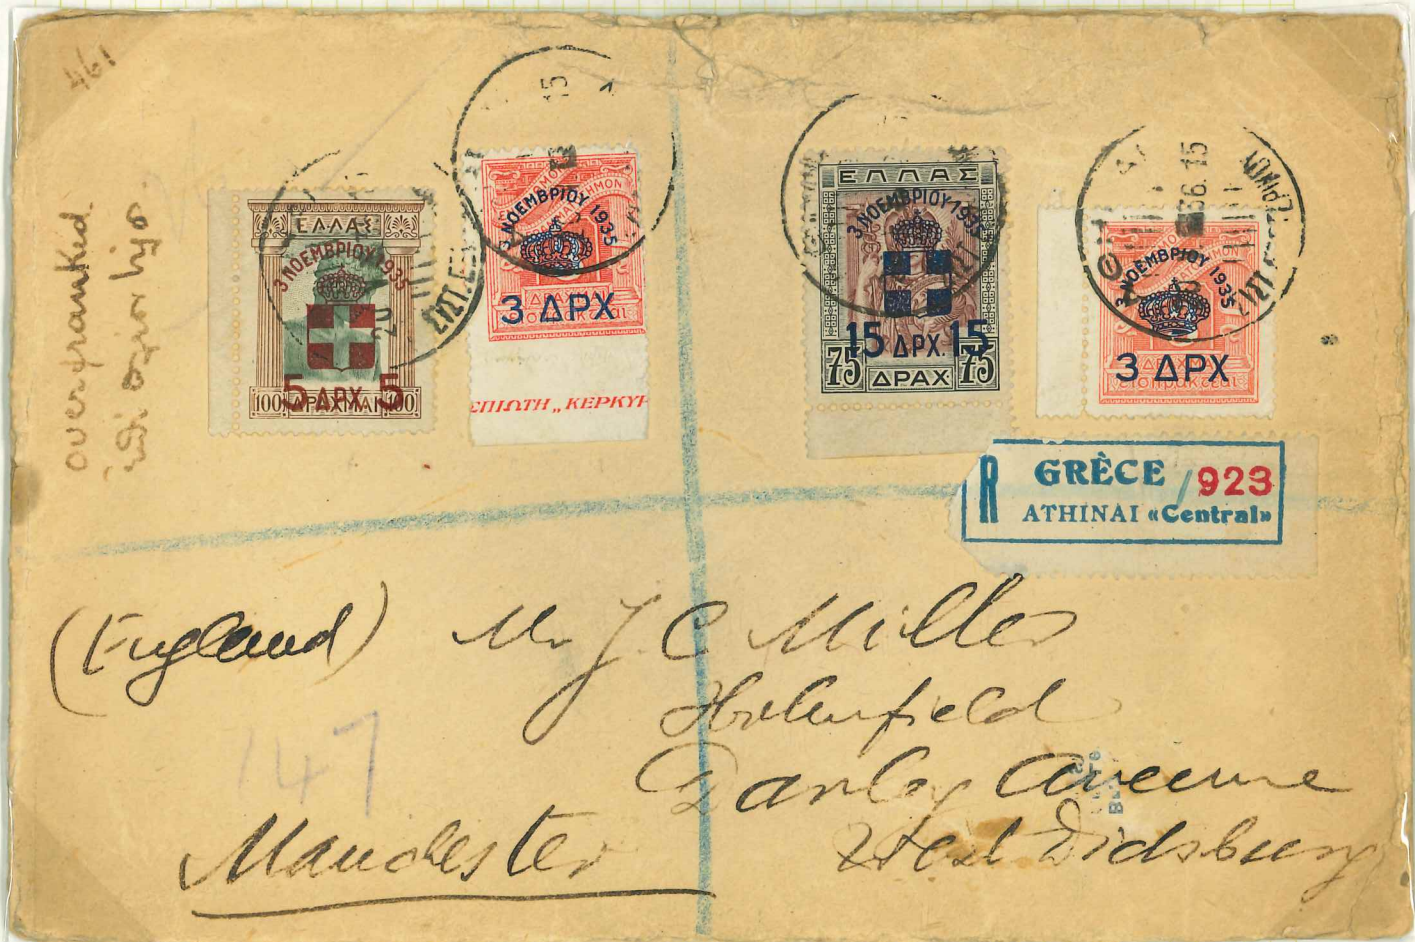 461
overfranked
ΕΛΛΑΣ
3 ΝΟΕΜΒΡΙΟΥ 1935
5 ΔΡΧ 5
100 ΔΡΑΧΜΑΙ 100
3 ΝΟΕΜΒΡΙΟΥ 1935
3 ΔΡΧ
ΣΠΙΩΤΗ „ ΚΕΡΚΥΡ
ΕΛΛΑΣ
3 ΝΟΕΜΒΡΙΟΥ 1935
15 ΔΡΧ. 15
75 ΔΡΑΧ 75
36.15
3 ΝΟΕΜΒΡΙΟΥ 1935
3 ΔΡΧ
R GRÈCE 923
ATHINAI «Central»
(England) Mr J. C Miller
Danley Avenue
147
West Didsbury
Manchester